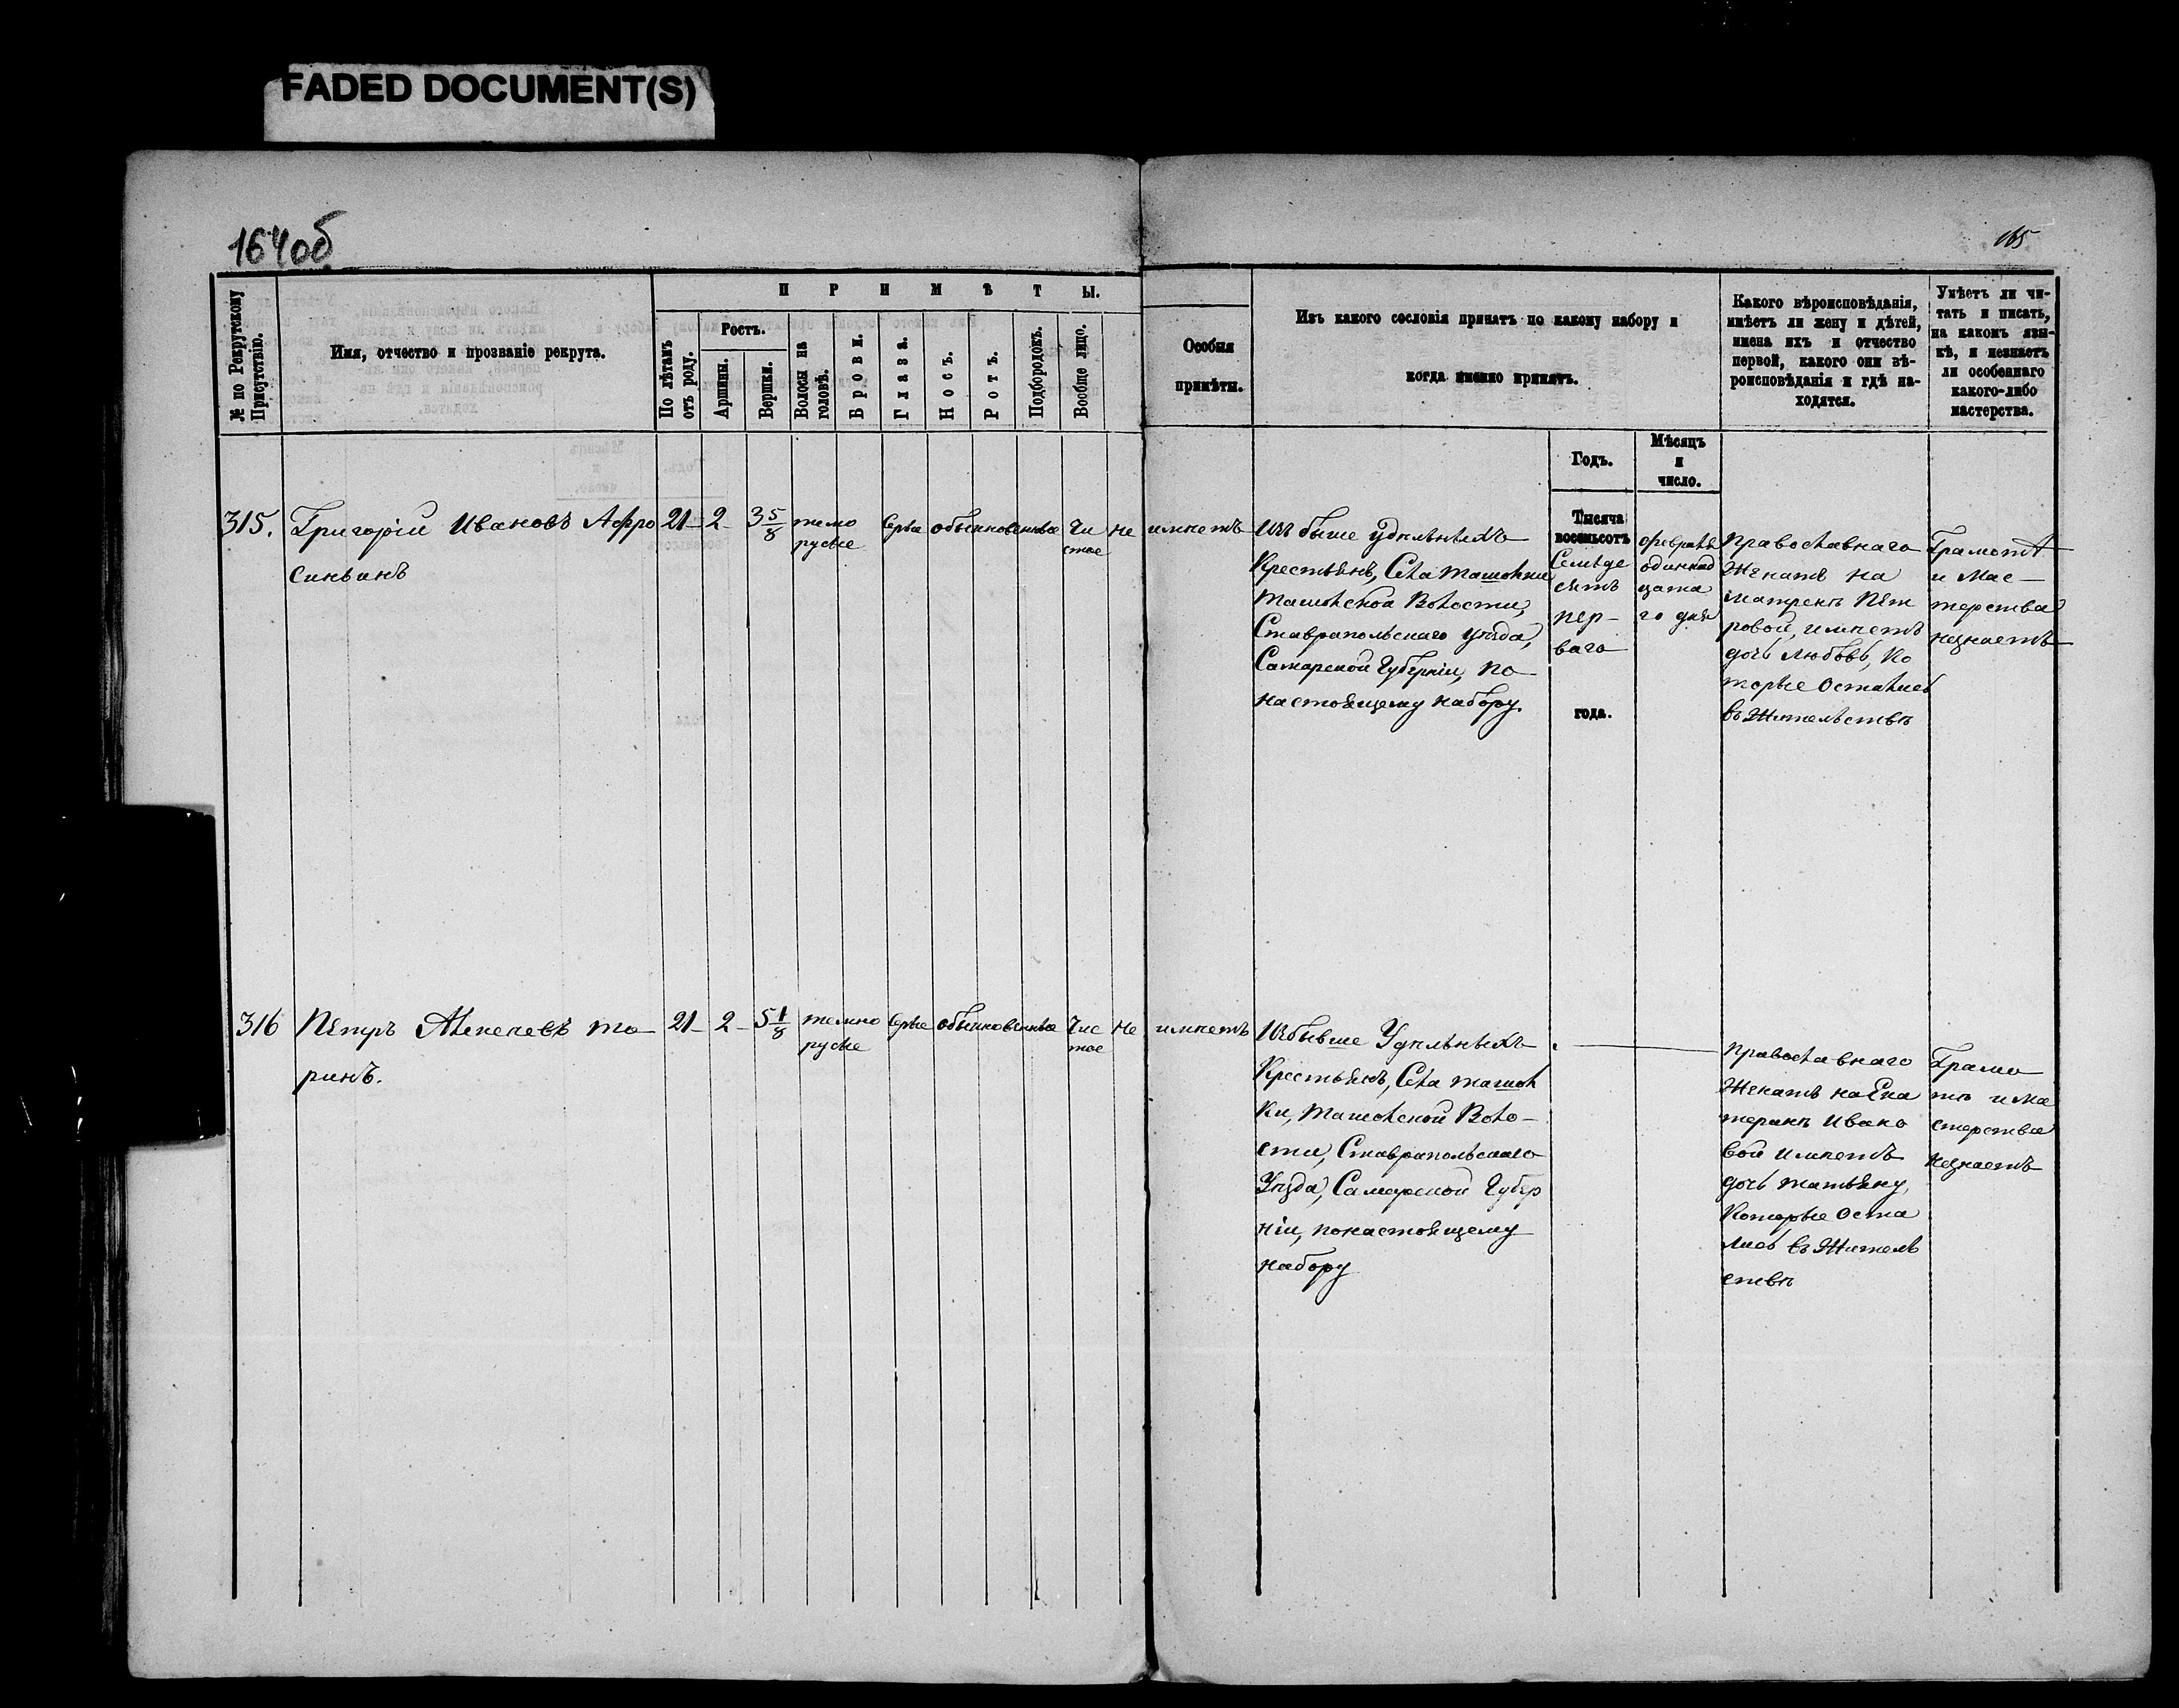 FADED DOCUMENT(S)
164об
165
№ по Рекрутскому Присутствію.
Имя, отчество и прозваніе рекрута.
ПРИМѢТЫ.
По лѣтамъ отъ роду.
Ростъ.
Аршины.
Вершки.
Волосы на головѣ.
Брови.
Глаза.
Носъ.
Ротъ.
Подбородокъ.
Вообще лицо.
Особыя
примѣты.
Изъ какого сословія принятъ по какому набору и
когда именно принятъ.
Какого вѣроисповѣданія,
имѣетъ ли жену и дѣтей,
имена ихъ и отчество
первой, какого они вѣ-
роисповѣданія и гдѣ на-
ходятся.
Умѣетъ ли чи-
тать и писать,
на какомъ язы-
кѣ, и незнаетъ
ли особеннаго
какого-либо
мастерства.
Годъ.
Мѣсяцъ
и
число.
315.
Григорій Ивановъ Афро
синьинъ
21 2 3 5/8
темо
русые
Серые
обыкновенные
Чи
стое
не имѣетъ
Изъ бывше удѣльныхъ
Крестьянъ, Села Ташолки
Ташолской Волости,
Ставропольскаго уѣзда,
Самарской Губерніи, по
настоящему набору.
Тысяча
восемьсотъ
Семьде
сятъ
пер-
ваго
года.
февраля
одиннад
цата
го дня
Православнаго
Женатъ на
Матренѣ Пет
ровой, имѣетъ
дочь Любовь, ко
торые остались
въ Жительствѣ
Грамотѣ
и Мас-
терства
незнаетъ
316
Петръ Алексеевъ То-
ринъ.
21 2 5 1/8
темно
русые
Серые
обыкновенные
Чис
тое
не имѣетъ
Изъ бывше Удѣльныхъ
Крестьянъ, Села Ташол
ки, Ташолской Воло-
сти, Ставропольскаго
Уѣзда, Самарской Губер
ніи, по настоящему
набору
Православнаго
Женатъ на Ека
теринѣ Ивано
вой имѣетъ
дочь Татьяну,
Которые оста
лись въ Жітель
ствѣ
Грамо
тѣ и Ма
стерства
незнаетъ